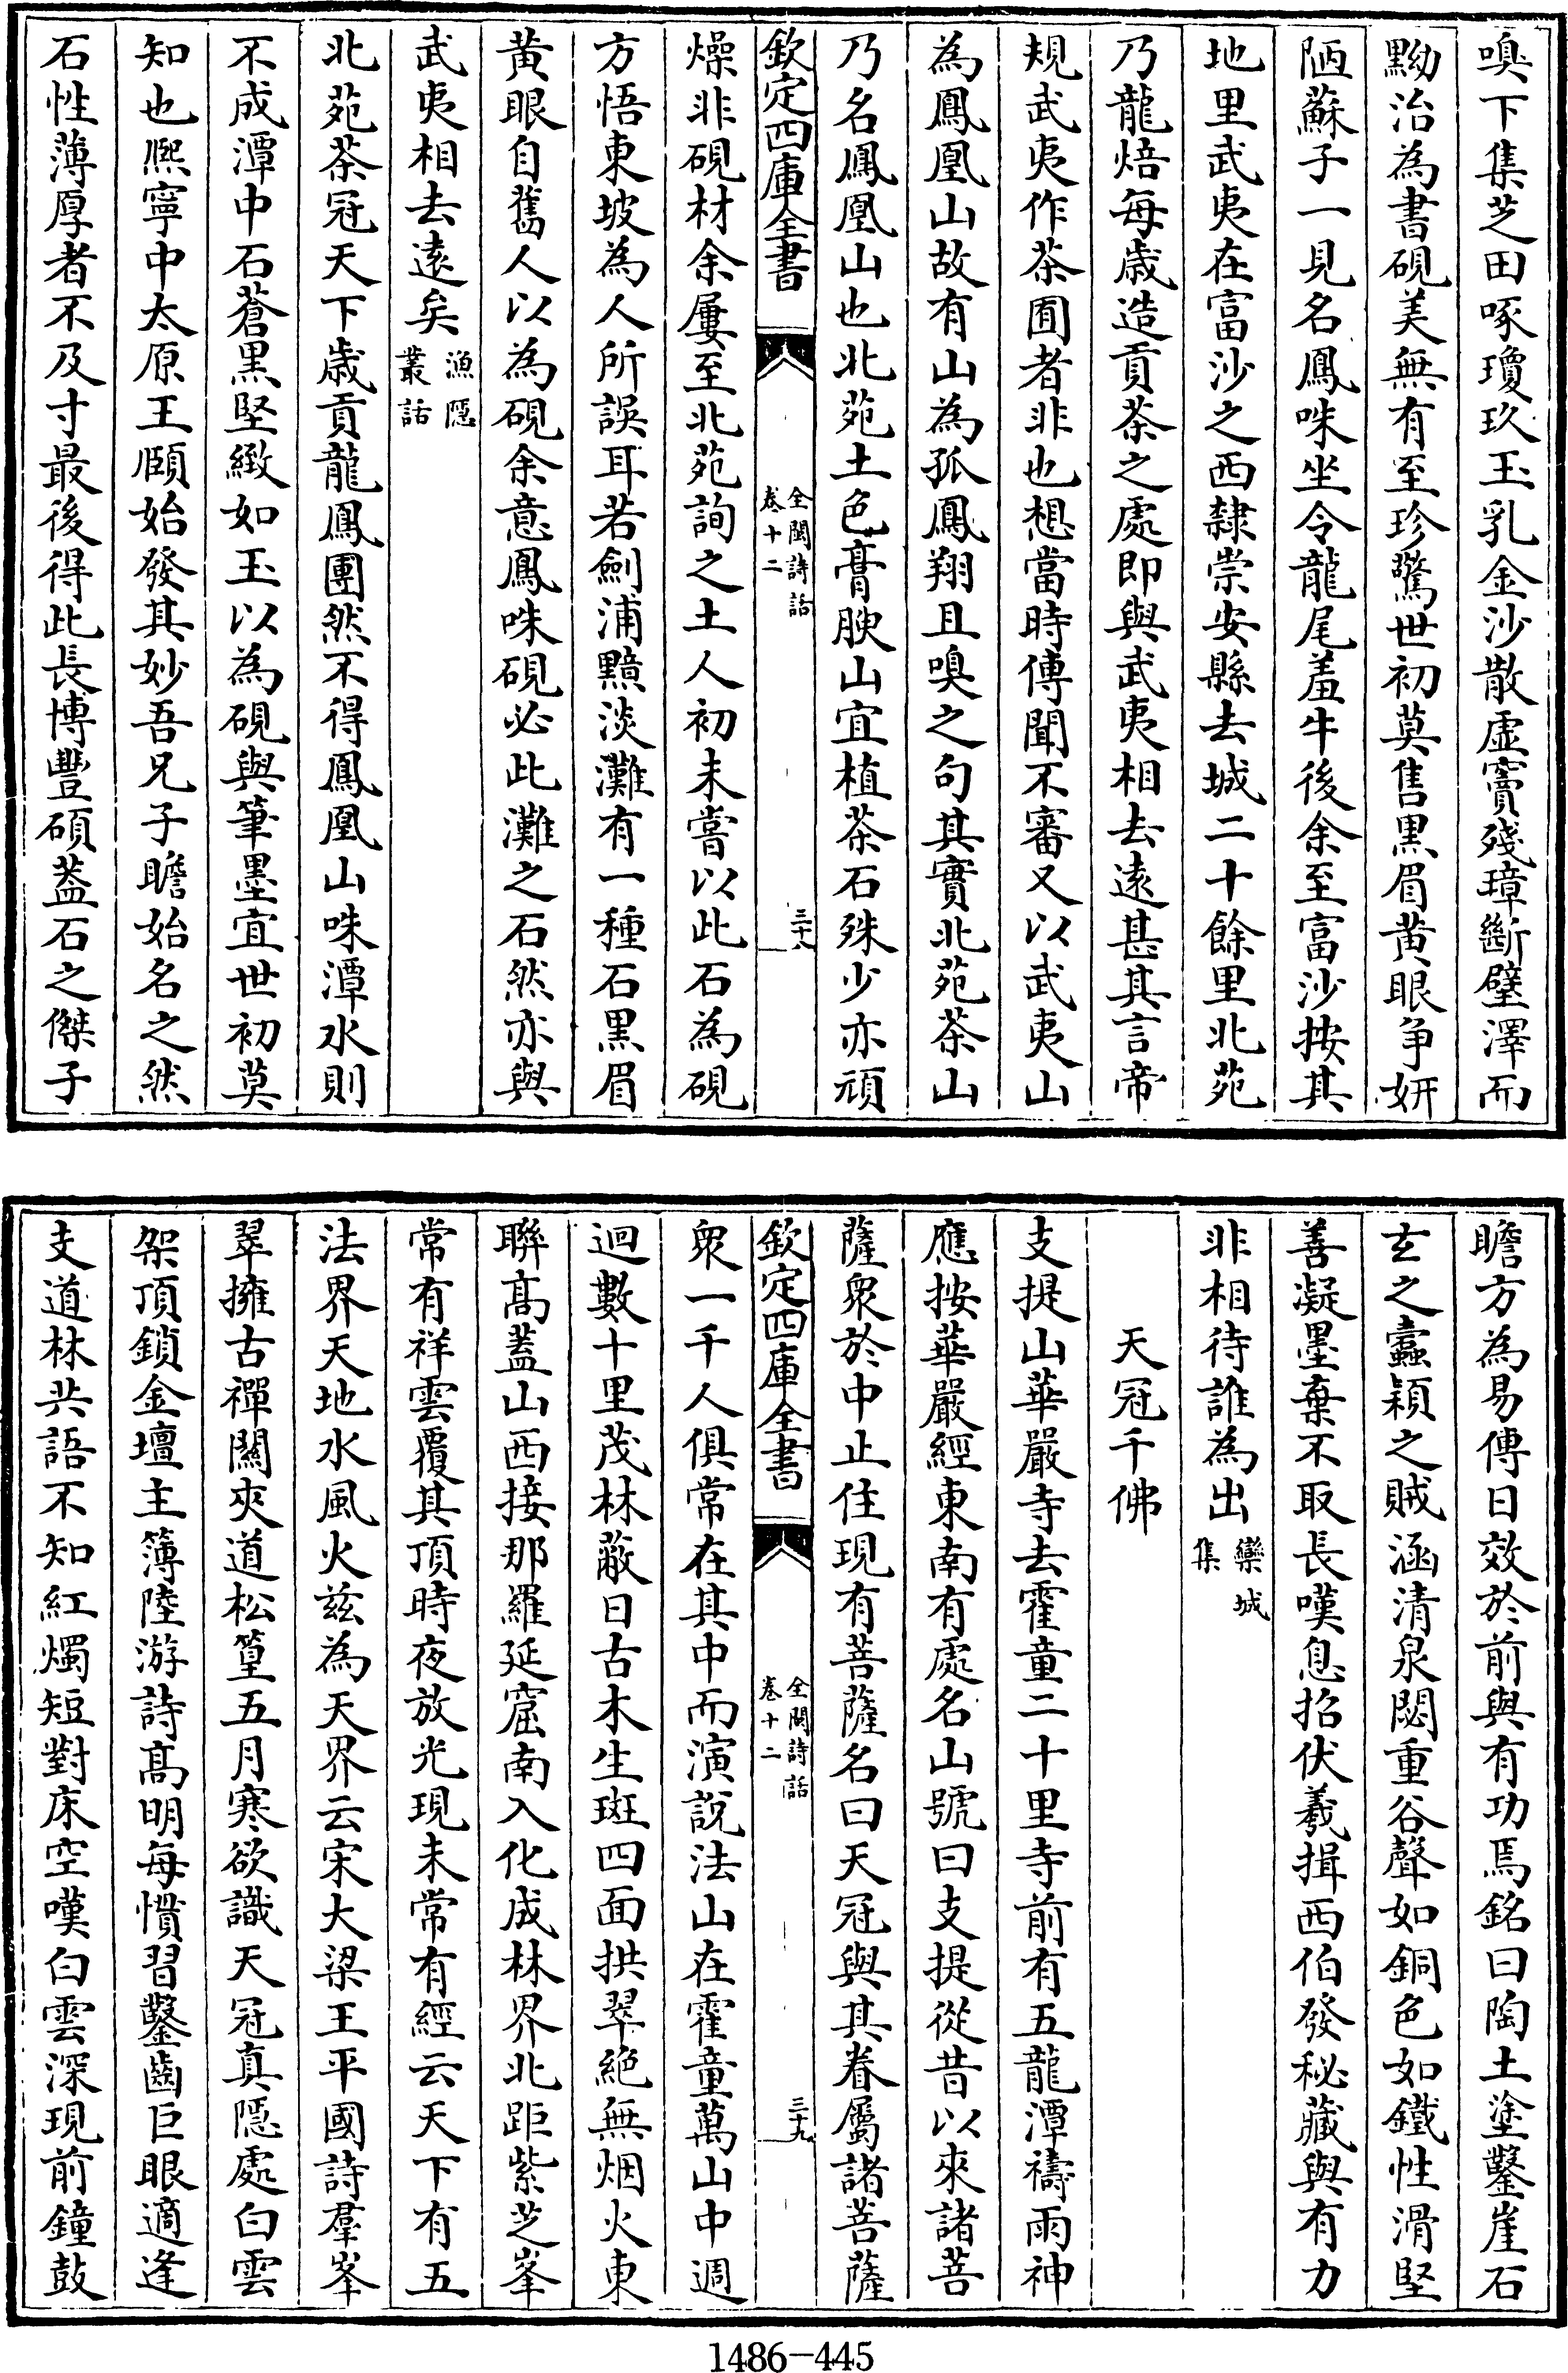 嗅下集芝田啄瓊玖玉乳金沙散虛竇殘璋斷璧澤而
黝治為書硯美無有至珍驚世初莫售黒眉黄眼争妍
陋蘇子一見名鳳咮坐令龍尾羞牛後余至富沙按其
地里武夷在富沙之西隸崇安縣去城二十餘里北苑
乃龍焙每歲造貢茶之處即與武夷相去遠甚其言帝
規武夷作茶囿者非也想當時傳聞不審又以武夷山
為鳳凰山故有山為孤鳳翔且嗅之句其實北苑茶山
乃名鳳凰山也北苑土色膏腴山宜植茶石殊少亦頑
欽定四庫全書
全閩詩話
卷十二
三十八
燥非硯材余屢至北苑詢之土人初未嘗以此石為硯
方悟東坡為人所誤耳若劍浦黯淡灘有一種石黒眉
黄眼自舊人以為硯余意鳳咮硯必此灘之石然亦與
武夷相去遠矣漁隱叢話
北苑茶冠天下歲貢龍鳳團然不得鳳凰山咮潭水則
不成潭中石蒼黒堅緻如玉以為硯與筆墨宜世初莫
知也熙寧中太原王頤始發其妙吾兄子瞻始名之然
石性薄厚者不及寸最後得此長博豐碩葢石之傑子
瞻方為易傳日效於前與有功焉銘曰陶土塗鑿崖石
玄之蠧穎之賊涵清泉閟重谷聲如銅色如鐵性滑堅
善凝墨棄不取長嘆息招伏羲揖西伯發秘藏與有力
非相待誰為出欒城集
天冠千佛
支提山華嚴寺去霍童二十里寺前有五龍潭禱雨神
應按華嚴經東南有處名山號曰支提從昔以來諸菩
薩衆於中止住現有菩薩名曰天冠與其眷屬諸菩薩
欽定四庫全書
全閩詩話
卷十二
三十九
衆一千人俱常在其中而演說法山在霍童萬山中週
迴數十里茂林蔽日古木生斑四面拱翠絶無烟火東
聯髙蓋山西接那羅延窟南入化成林界北距紫芝峯
常有祥雲覆其頂時夜放光現未常有經云天下有五
法界天地水風火兹為天界云宋大梁王平國詩羣峯
翠擁古禪關夾道松篁五月寒欲識天冠真隱處白雲
架頂鎖金壇主簿陸游詩髙明每慣習鑿齒巨眼適逢
支道林共語不知紅燭短對床空嘆白雲深現前鐘鼓
1486-445